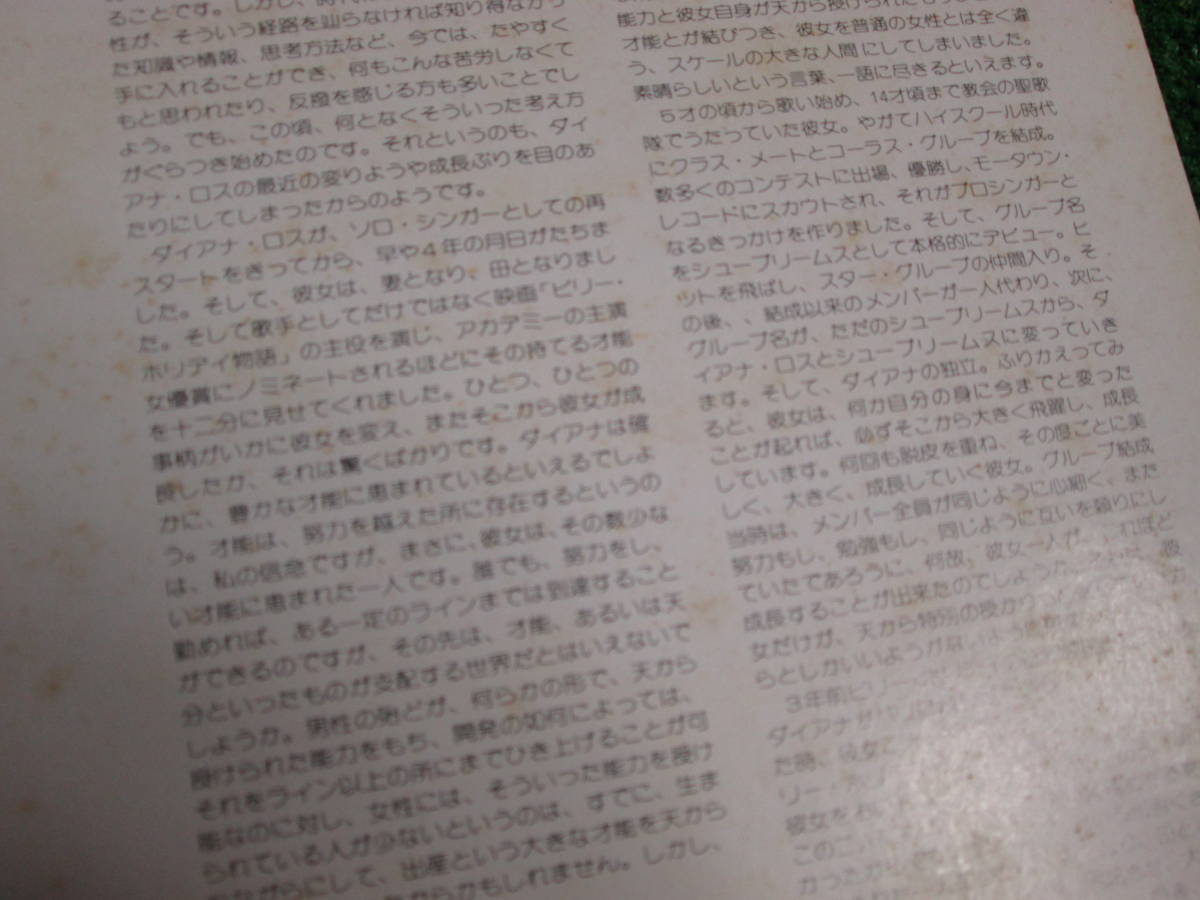 ることです。しかし、時代
性が、そういう経路を辿らなければ知り得なかっ
た知識や情報、思考方法など、今では、たやすく
手に入れることができ、何もこんな苦労しなくて
もと思われたり、反撥を感じる方も多いことでし
ょう。でも、この頃、何となくそういった考え方
がぐらつき始めたのです。それというのも、ダイ
アナ・ロスの最近の変りようや成長ぶりを目のあ
たりにしてしまったからのようです。
ダイアナ・ロスが、ソロ・シンガーとしての再
スタートをきってから、早や4年の月日がたちま
した。そして、彼女は、妻となり、母となりまし
た。そして歌手としてだけではなく映画「ビリー・
ホリデイ物語」の主役を演じ、アカデミーの主演
女優賞にノミネートされるほどにその持てる才能
を十二分に見せてくれました。ひとつ、ひとつの
事柄がいかに彼女を変え、またそこから彼女が成
長したか、それは驚くばかりです。ダイアナは確
かに、豊かな才能に恵まれているといえるでしょ
う。才能は、努力を越えた所に存在するというの
は、私の信念ですが、まさに、彼女は、その数少な
い才能に恵まれた一人です。誰でも、努力をし、
勤めれば、ある一定のラインまでは到達すること
ができるのですが、その先は、才能、あるいは天
分といったものが支配する世界だとはいえないで
しょうか。男性の殆どが、何らかの形で、天から
授けられた能力をもち、開発の如何によっては、
それをライン以上の所にまでひき上げることが可
能なのに対し、女性には、そういった能力を授け
られている人が少ないというのは、すでに、生ま
ながらにして、出産という大きな才能を天から
からかもしれません。しかし、
能力と彼女自身が天から授けられた
才能とが結びつき、彼女を普通の女性とは全く違
う、スケールの大きな人間にしてしまいました。
素晴らしいという言葉、一語に尽きるといえます。
5才の頃から歌い始め、14才頃まで教会の聖歌
隊でうたっていた彼女。やがてハイスクール時代
にクラス・メートとコーラス・グループを結成。
数多くのコンテストに出場、優勝し、モータウン・
レコードにスカウトされ、それがプロシンガーと
なるきっかけを作りました。そして、グループ名
をシュープリームスとして本格的にデビュー。ヒ
ットを飛ばし、スター・グループの仲間入り。そ
の後、、結成以来のメンバーが一人代わり、次に、
グループ名が、ただのシュープリームスから、ダ
イアナ・ロスとシュープリームスに変っていき
ます。そして、ダイアナの独立。ふりかえってみ
ると、彼女は、何か自分の身に今までと変った
ことが起れば、必ずそこから大きく飛躍し、成長
しています。何回も脱皮を重ね、その度ごとに美
しく、大きく、成長していく彼女。グループ結成
当時は、メンバー全員が同じように心細く、また
努力もし、勉強もし、同じように互いを頼りにし
ていたであろうに、何故、彼女一人が、れほど
成長することが出来たのでしょうか。それは、彼
女だけが、天から特別の授かり
らとしかいいようがない
3年前ビリー・ホ
ダイアナが
た時、彼女
リー・
彼女を
このこ
かった